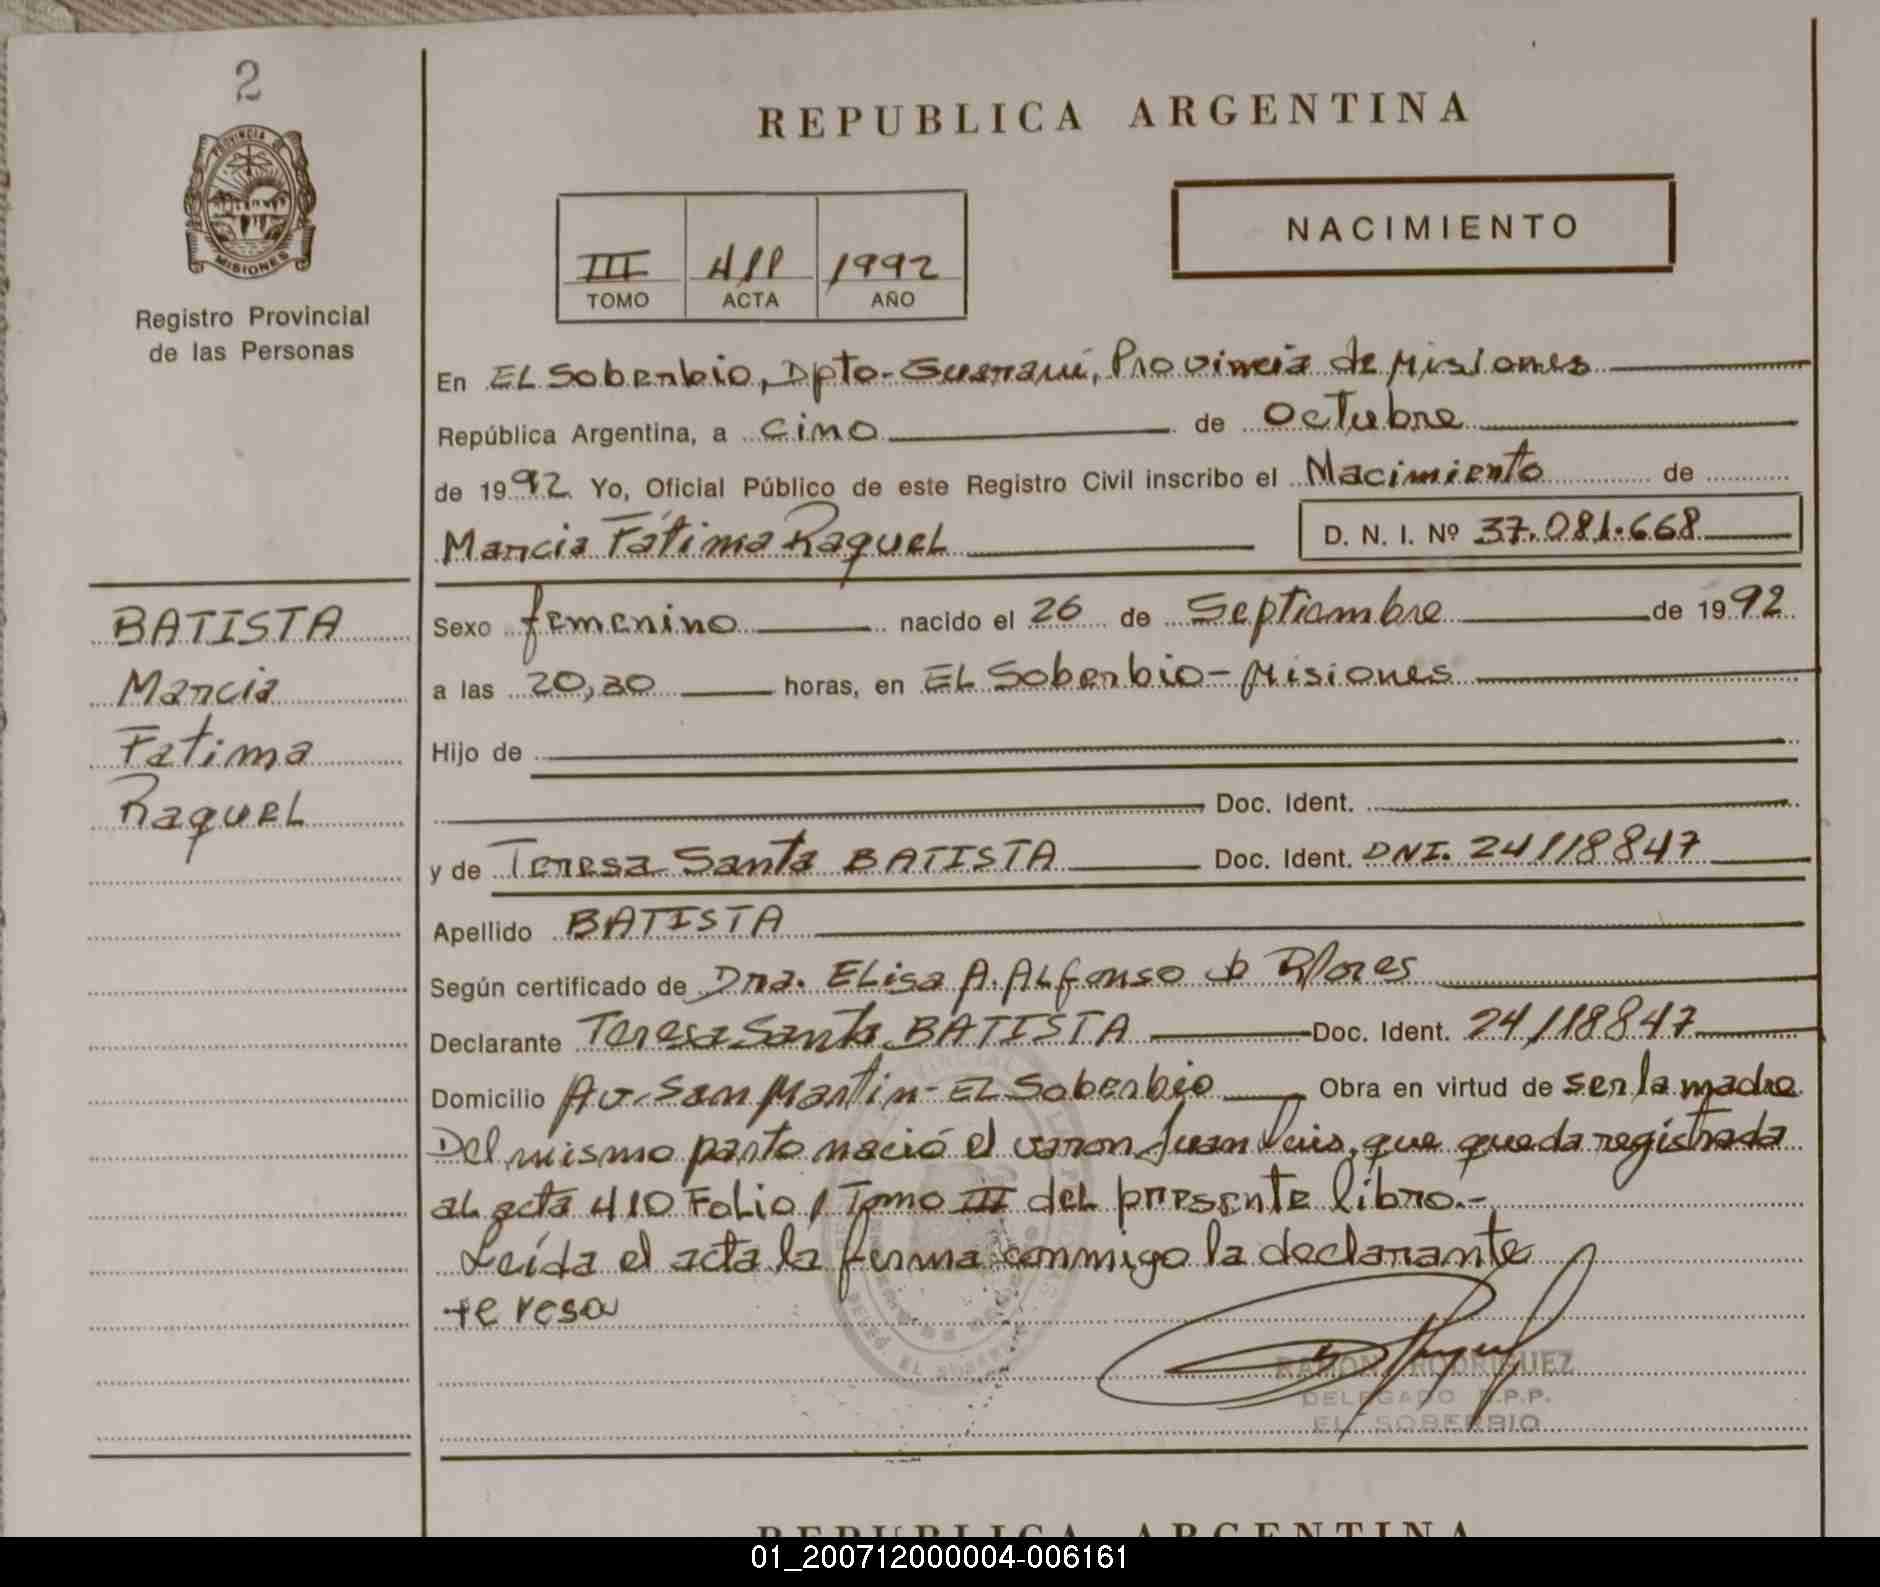 2
PROVINCIA DE
MISIONES
Registro Provincial
de las Personas
REPUBLICA ARGENTINA
NACIMIENTO
III 411 1992
TOMO ACTA AÑO
En EL Soberbio, Dpto-Guaraní, Provincia de Misiones
República Argentina, a cino de Octubre
de 1992 Yo, Oficial Público de este Registro Civil inscribo el Nacimiento de
Marcia Fátima Raquel D. N. I. Nº 37.081.668
BATISTA
Marcia
Fatima
Raquel
Sexo femenino nacido el 26 de Septiembre de 1992
a las 20,30 horas, en EL Soberbio - Misiones
Hijo de
Doc. Ident.
y de Teresa Santa BATISTA Doc. Ident. DNI. 24118847
Apellido BATISTA
Según certificado de Dra. ELisa A. ALfonso
Declarante Teresa Santa BATISTA Doc. Ident. 24118847
Domicilio Av. San Martin - EL Soberbio Obra en virtud de ser la madre
Del mismo parto nació el varon Juan Luis, que queda registrada
al acta 410 Folio 1 Tomo III del presente libro.-
Leída el acta la firma conmigo la declarante
teresa
RAMON RODRIGUEZ
DELEGADO R.P.P.
EL SOBERBIO
REPUBLICA ARGENTINA
01_200712000004-006161